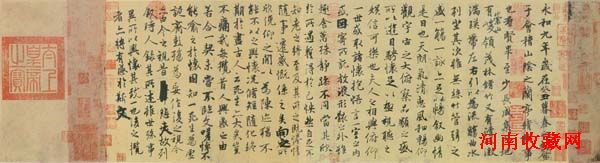 永和九年歲在癸丑暮春之初會
于會稽山陰之蘭亭脩稧事
也羣賢畢至少長咸集此地
有崇山峻領茂林脩竹又有清流激
湍暎帶左右引以為流觴曲水
列坐其次雖無絲竹管弦之
盛一觴一詠亦足以暢敘幽情
是日也天朗氣清惠風和暢仰
觀宇宙之大俯察品類之盛
所以遊目騁懷足以極視聽之
娛信可樂也夫人之相與俯仰
一世或取諸懷抱悟言一室之內
或因寄所託放浪形骸之外雖
趣舍萬殊靜躁不同當其欣
於所遇蹔得於己怏然自足不
知老之將至及其所之既惓情
隨事遷感慨係之矣向之所
欣俛仰之間以為陳迹猶不
能不以之興懷況脩短隨化終
期於盡古人云死生亦大矣豈
不痛哉每攬昔人興感之由
若合一契未嘗不臨文嗟悼不
能喻之於懷固知一死生為虛
誕齊彭殤為妄作後之視今
亦由今之視昔悲夫故列
敘時人錄其所述雖世殊事
異所以興懷其致一也後之攬
者亦將有感於斯文
太上皇帝之寶
河南收藏网